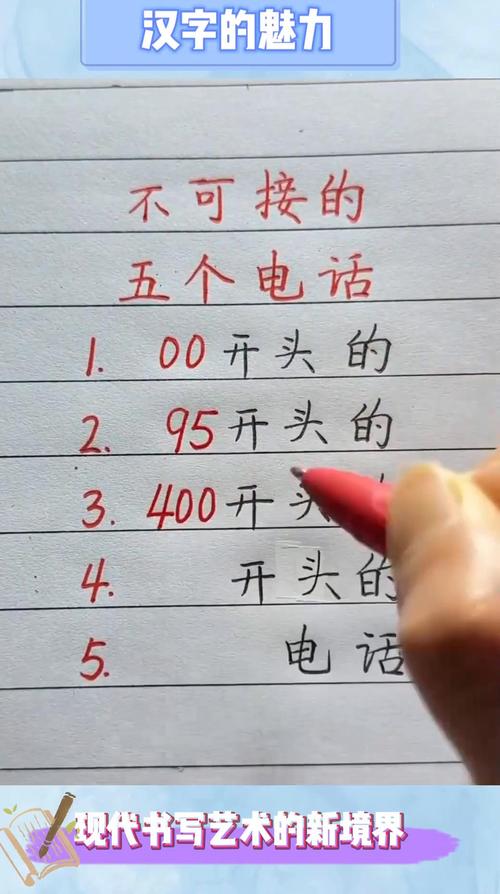 汉字的魅力
不可接的
五个电话
1. 00开头的
2. 95开头的
3. 400开头
4. 开头的
5. 电话
现代书写艺术的新境界